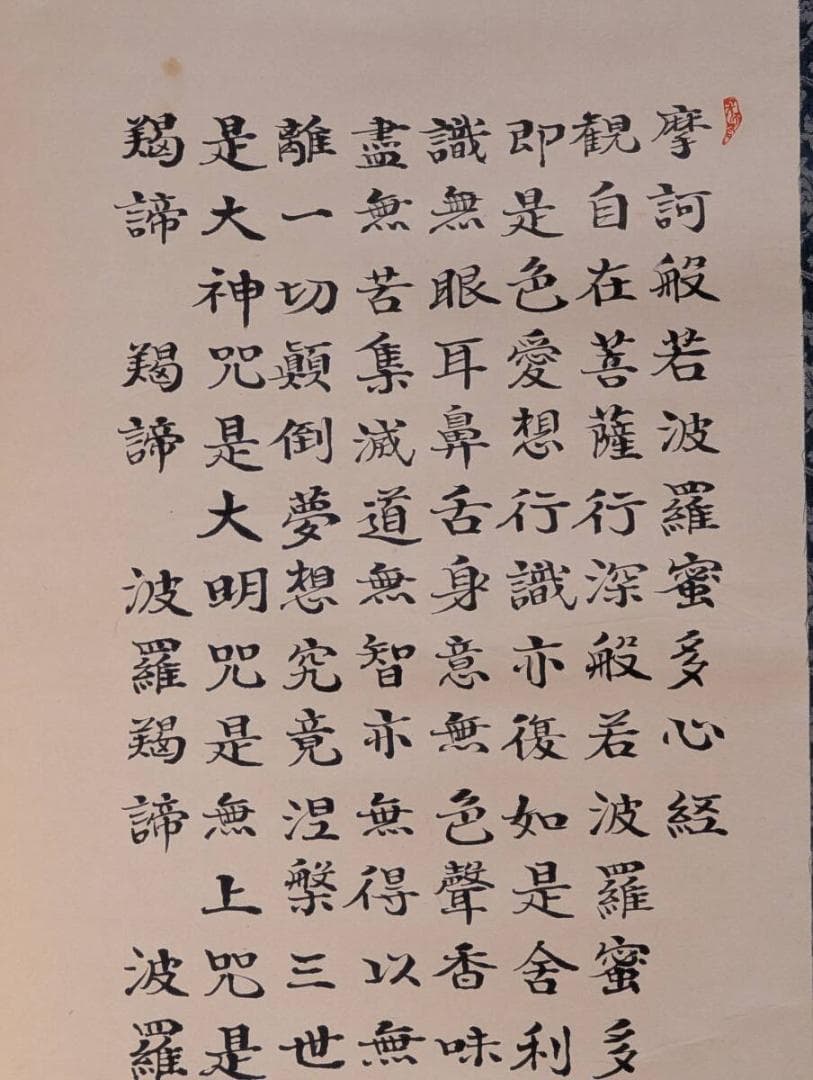 摩訶般若波羅蜜多心経
観自在菩薩行深般若波羅蜜多
即是色愛想行識亦復如是舍利
識無眼耳鼻舌身意無色聲香味
盡無苦集滅道無智亦無得以無
離一切顛倒夢想究竟涅槃三世
是大神咒是大明咒是無上咒是
羯諦　羯諦　波羅羯諦　波羅